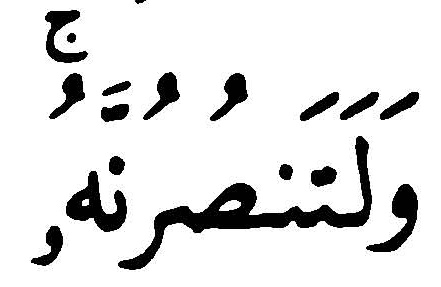 وَلَتَنصُرُنَّهُۥۚ